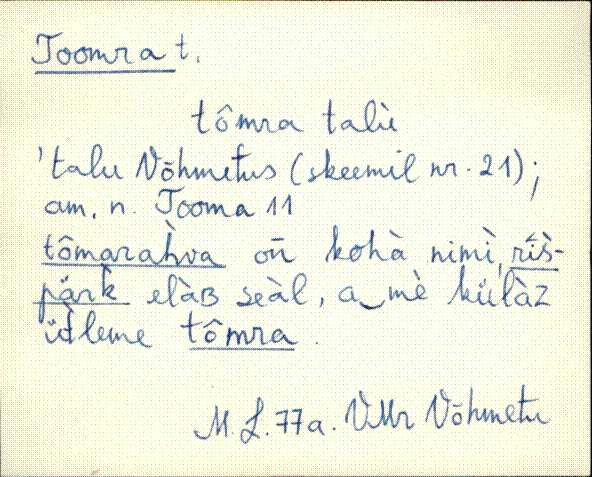 Toomra t.
tômra talù
'talu Võhmetus (skeemil nr. 21);
am. n. Tooma 11
tômarahva on̄ kohà nimì, rís̀-
pärk elàʙ seàl, a‿mè külàz
üt̀leme tômra.
M. L. 77a. VMr Võhmetu